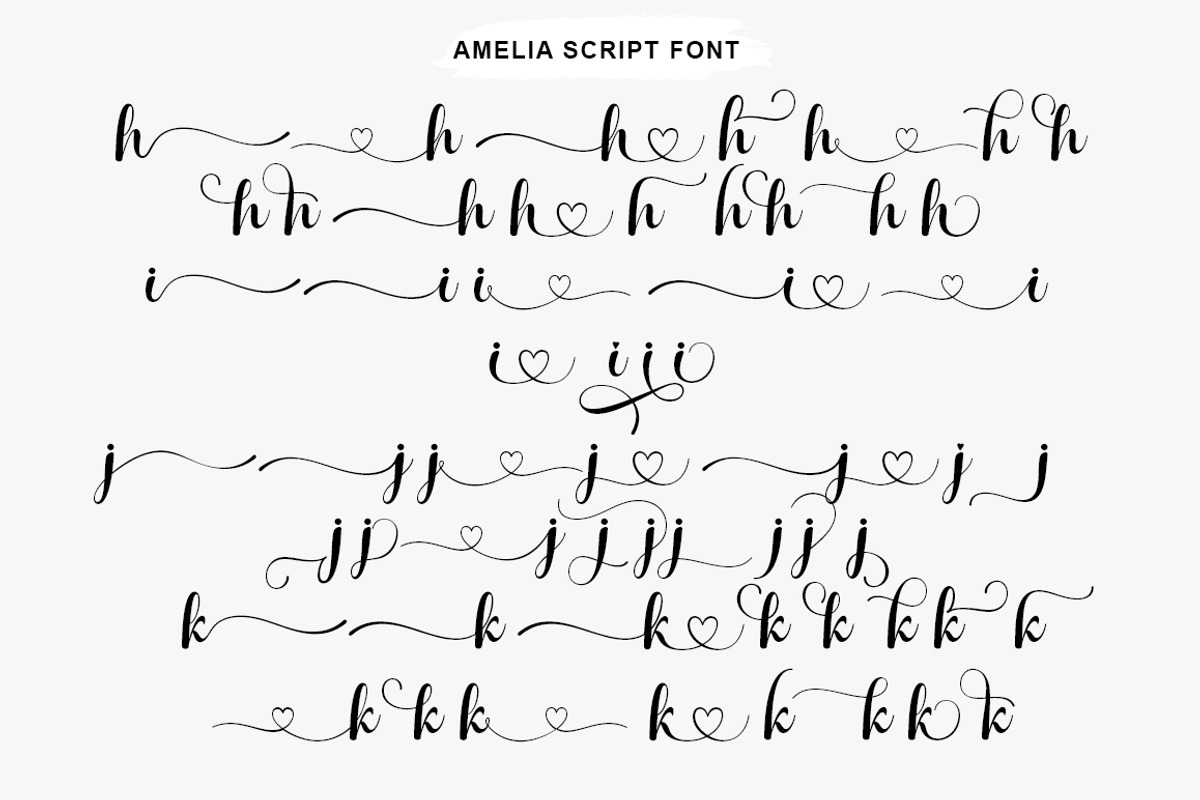 AMELIA SCRIPT FONT
h h h h h h h
h h h h h h h h h
i i i i i
i i i i
j j j j j j j
j j j j j j j j j
k k k k k k k k
k k k k k k k k